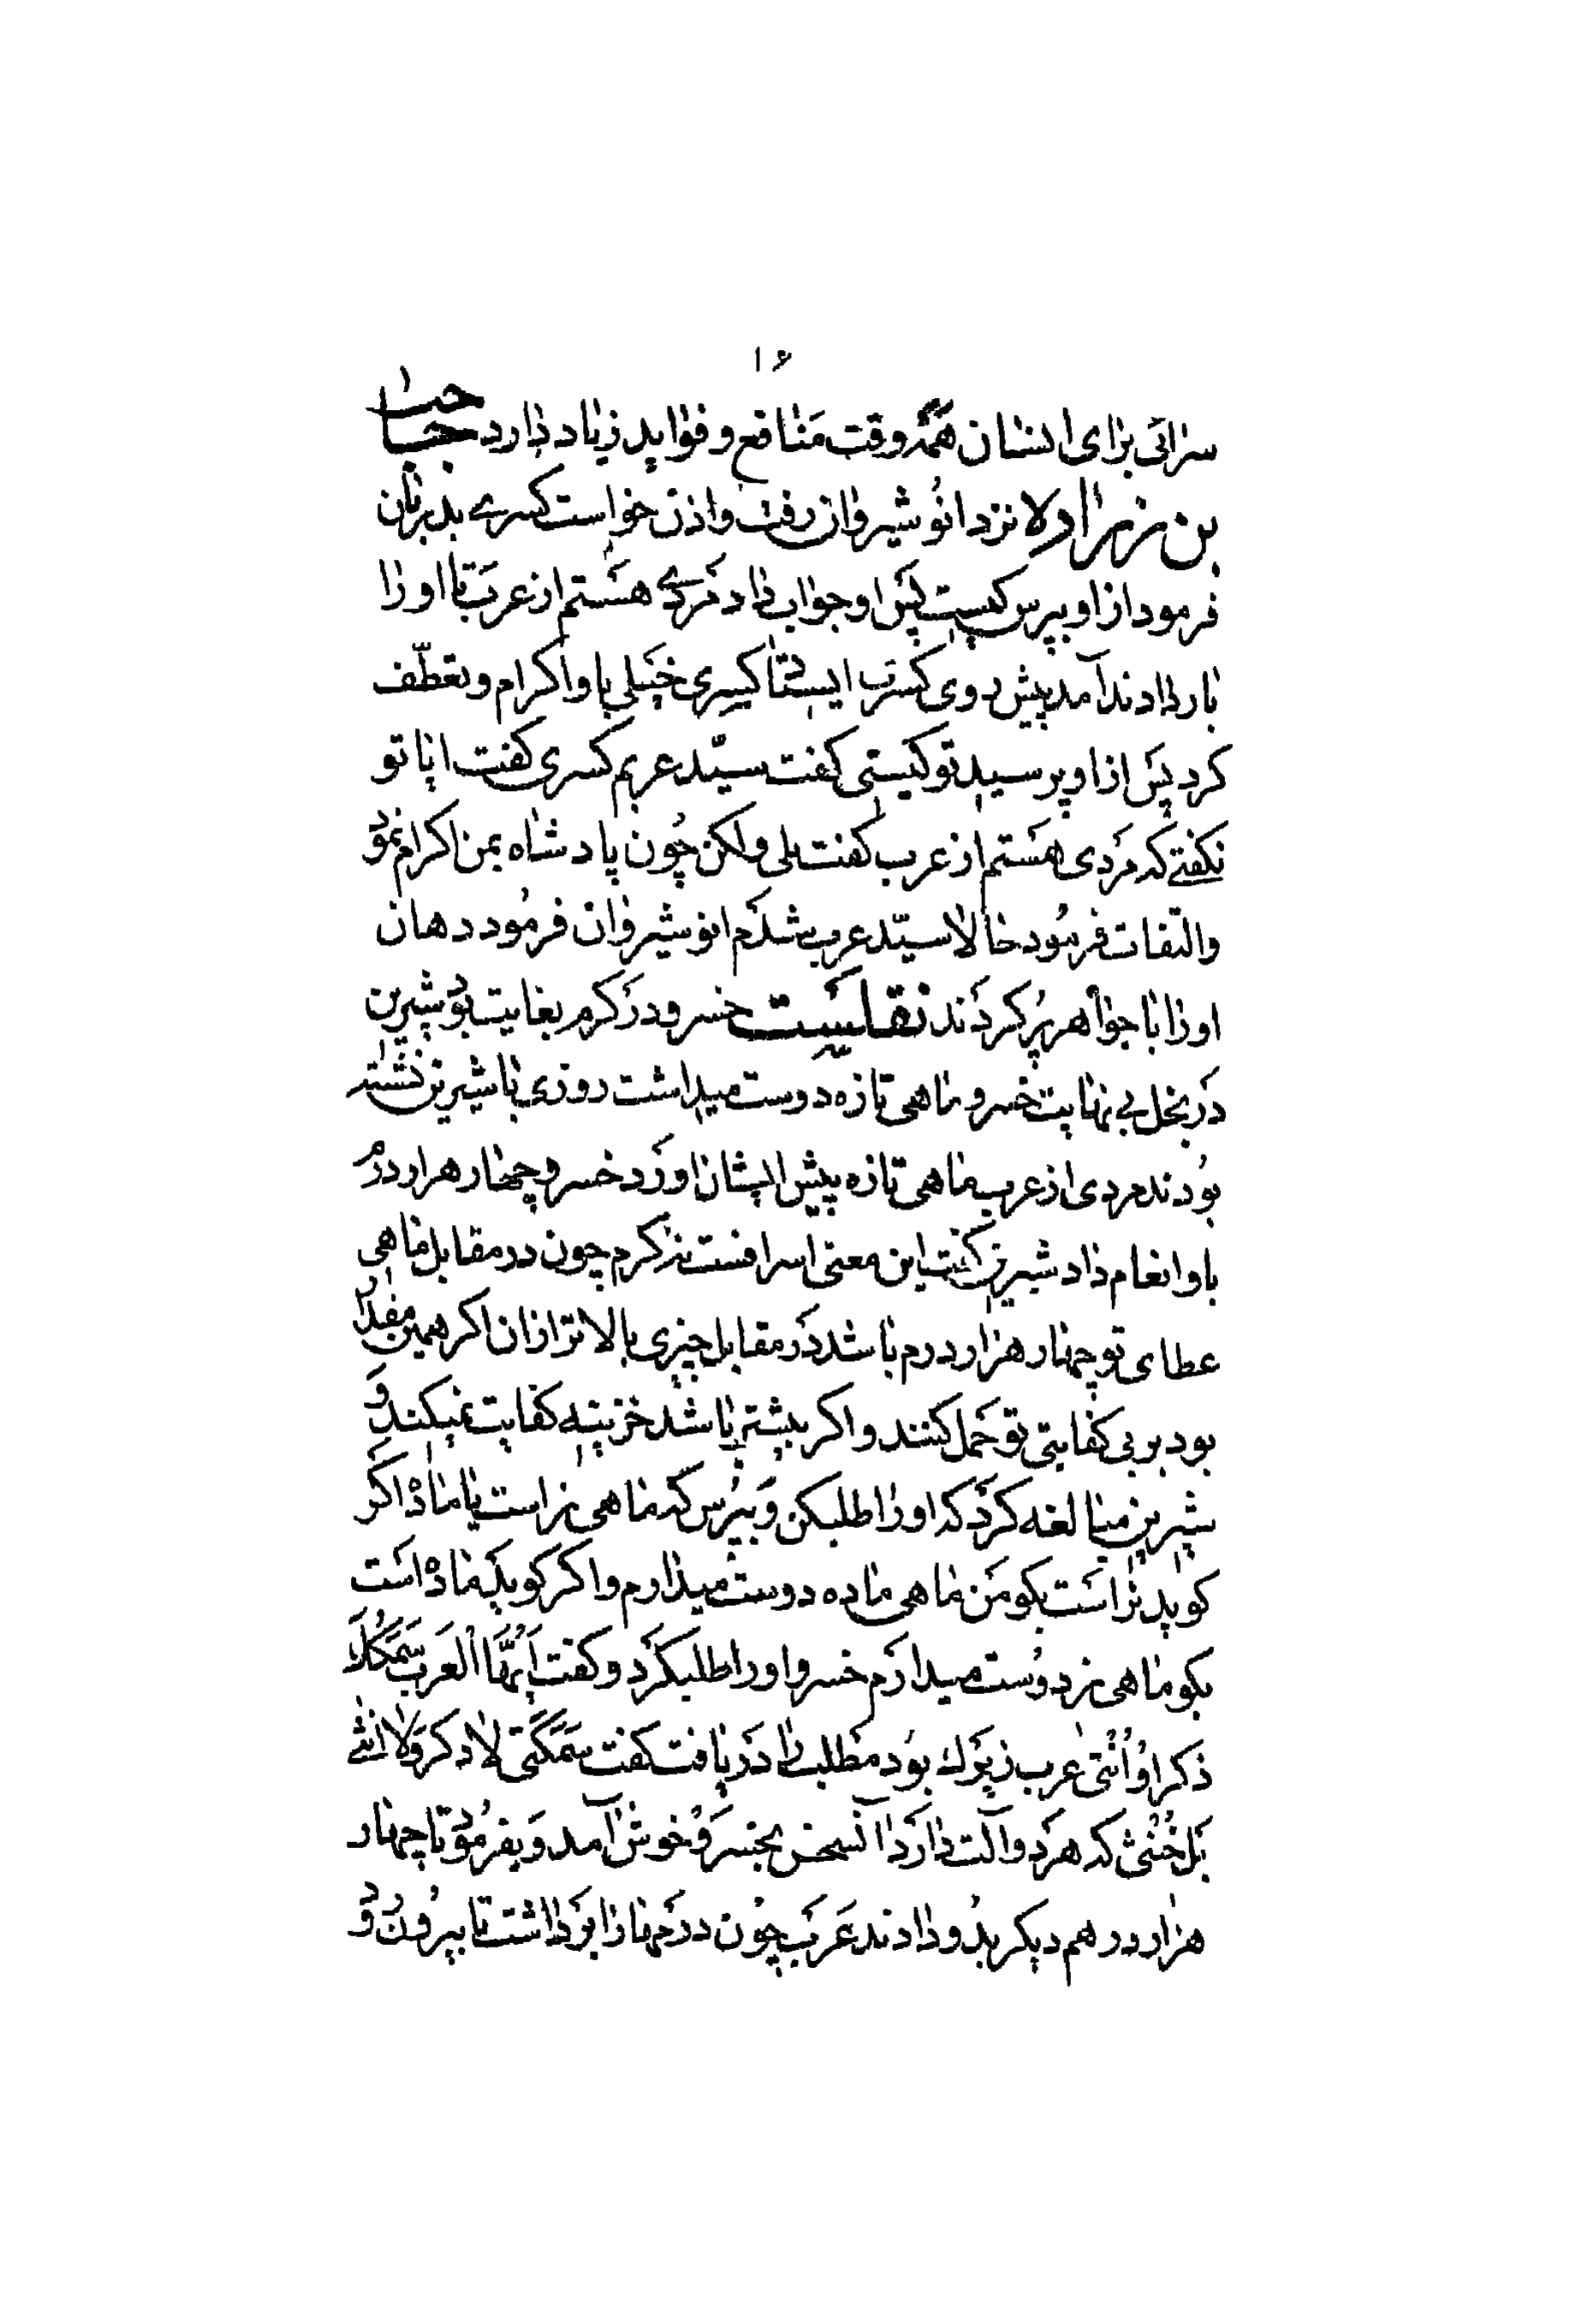 ۱۶
سرائی برای انسان همه وقت منافع و فواید زیاد دارد
بن زراره نزد انوشیروان رفت واذن خواست کسری بدربان
فرمود از او بپرس کیست پس او جواب داد مردے هستم از عرب تا او را
بار دادند آمد پیش روی کسری ایستاد کسری خیلی باو اکرام و تعطّف
کرد پس از او پرسید تو کیستی کفت سیّد عربم کسری کفت ایا تو
نکفتے که مردی هستم از عرب کفت بلی ولکن چون پادشاه بمن اکرام نمود
والتفات فرمود حالا سیّد عرب شدم انوشیروان فرمود دهان
او را با جواهر پر کردند نقلست خسرو در کرم بغایت بود شیرین
در بخل بی نهایت خسرو ماهی تازه دوست میداشت روزی با شیرین نشسته
بودند مردی از عرب ماهی تازه پیش ایشان اورد خسرو چهار هزار درم
باو انعام داد شیرین کفت این معنی اسرافست نه کرم چون در مقابل ماهی
عطای تو چهار هزار درم باشد در مقابل چیزی بالاتر از ان اکر همین مقدار
بود بر بی کفایتی تو حمل کنند و اکر بیشتر باشد خزینه کفایت نمیکند و
شیرین مبالغه کرد که او را طلبکن و بپرس که ماهی نر است یا ماده اکر
کوید نر است بکو من ماهی ماده دوست میدارم و اکر کوید ماده است
بکو ماهی نر دوست میدارم خسرو او را طلبکرد و کفت اَیُّهَا الْعَرَب سَمَکُکَ
ذکر اَوْ اُنْثی عرب زیرک بود مطلب را دریافت کفت سَمَکَتی لا ذکر وَلا انثی
بَل خُنْثی که هر دو آلت دارد آنسخن بخسرو خوش آمد و بفرمود تا چهار
هزار درهم دیکر بدو دادند عرب چون درمها را برداشت تا بیرون رود